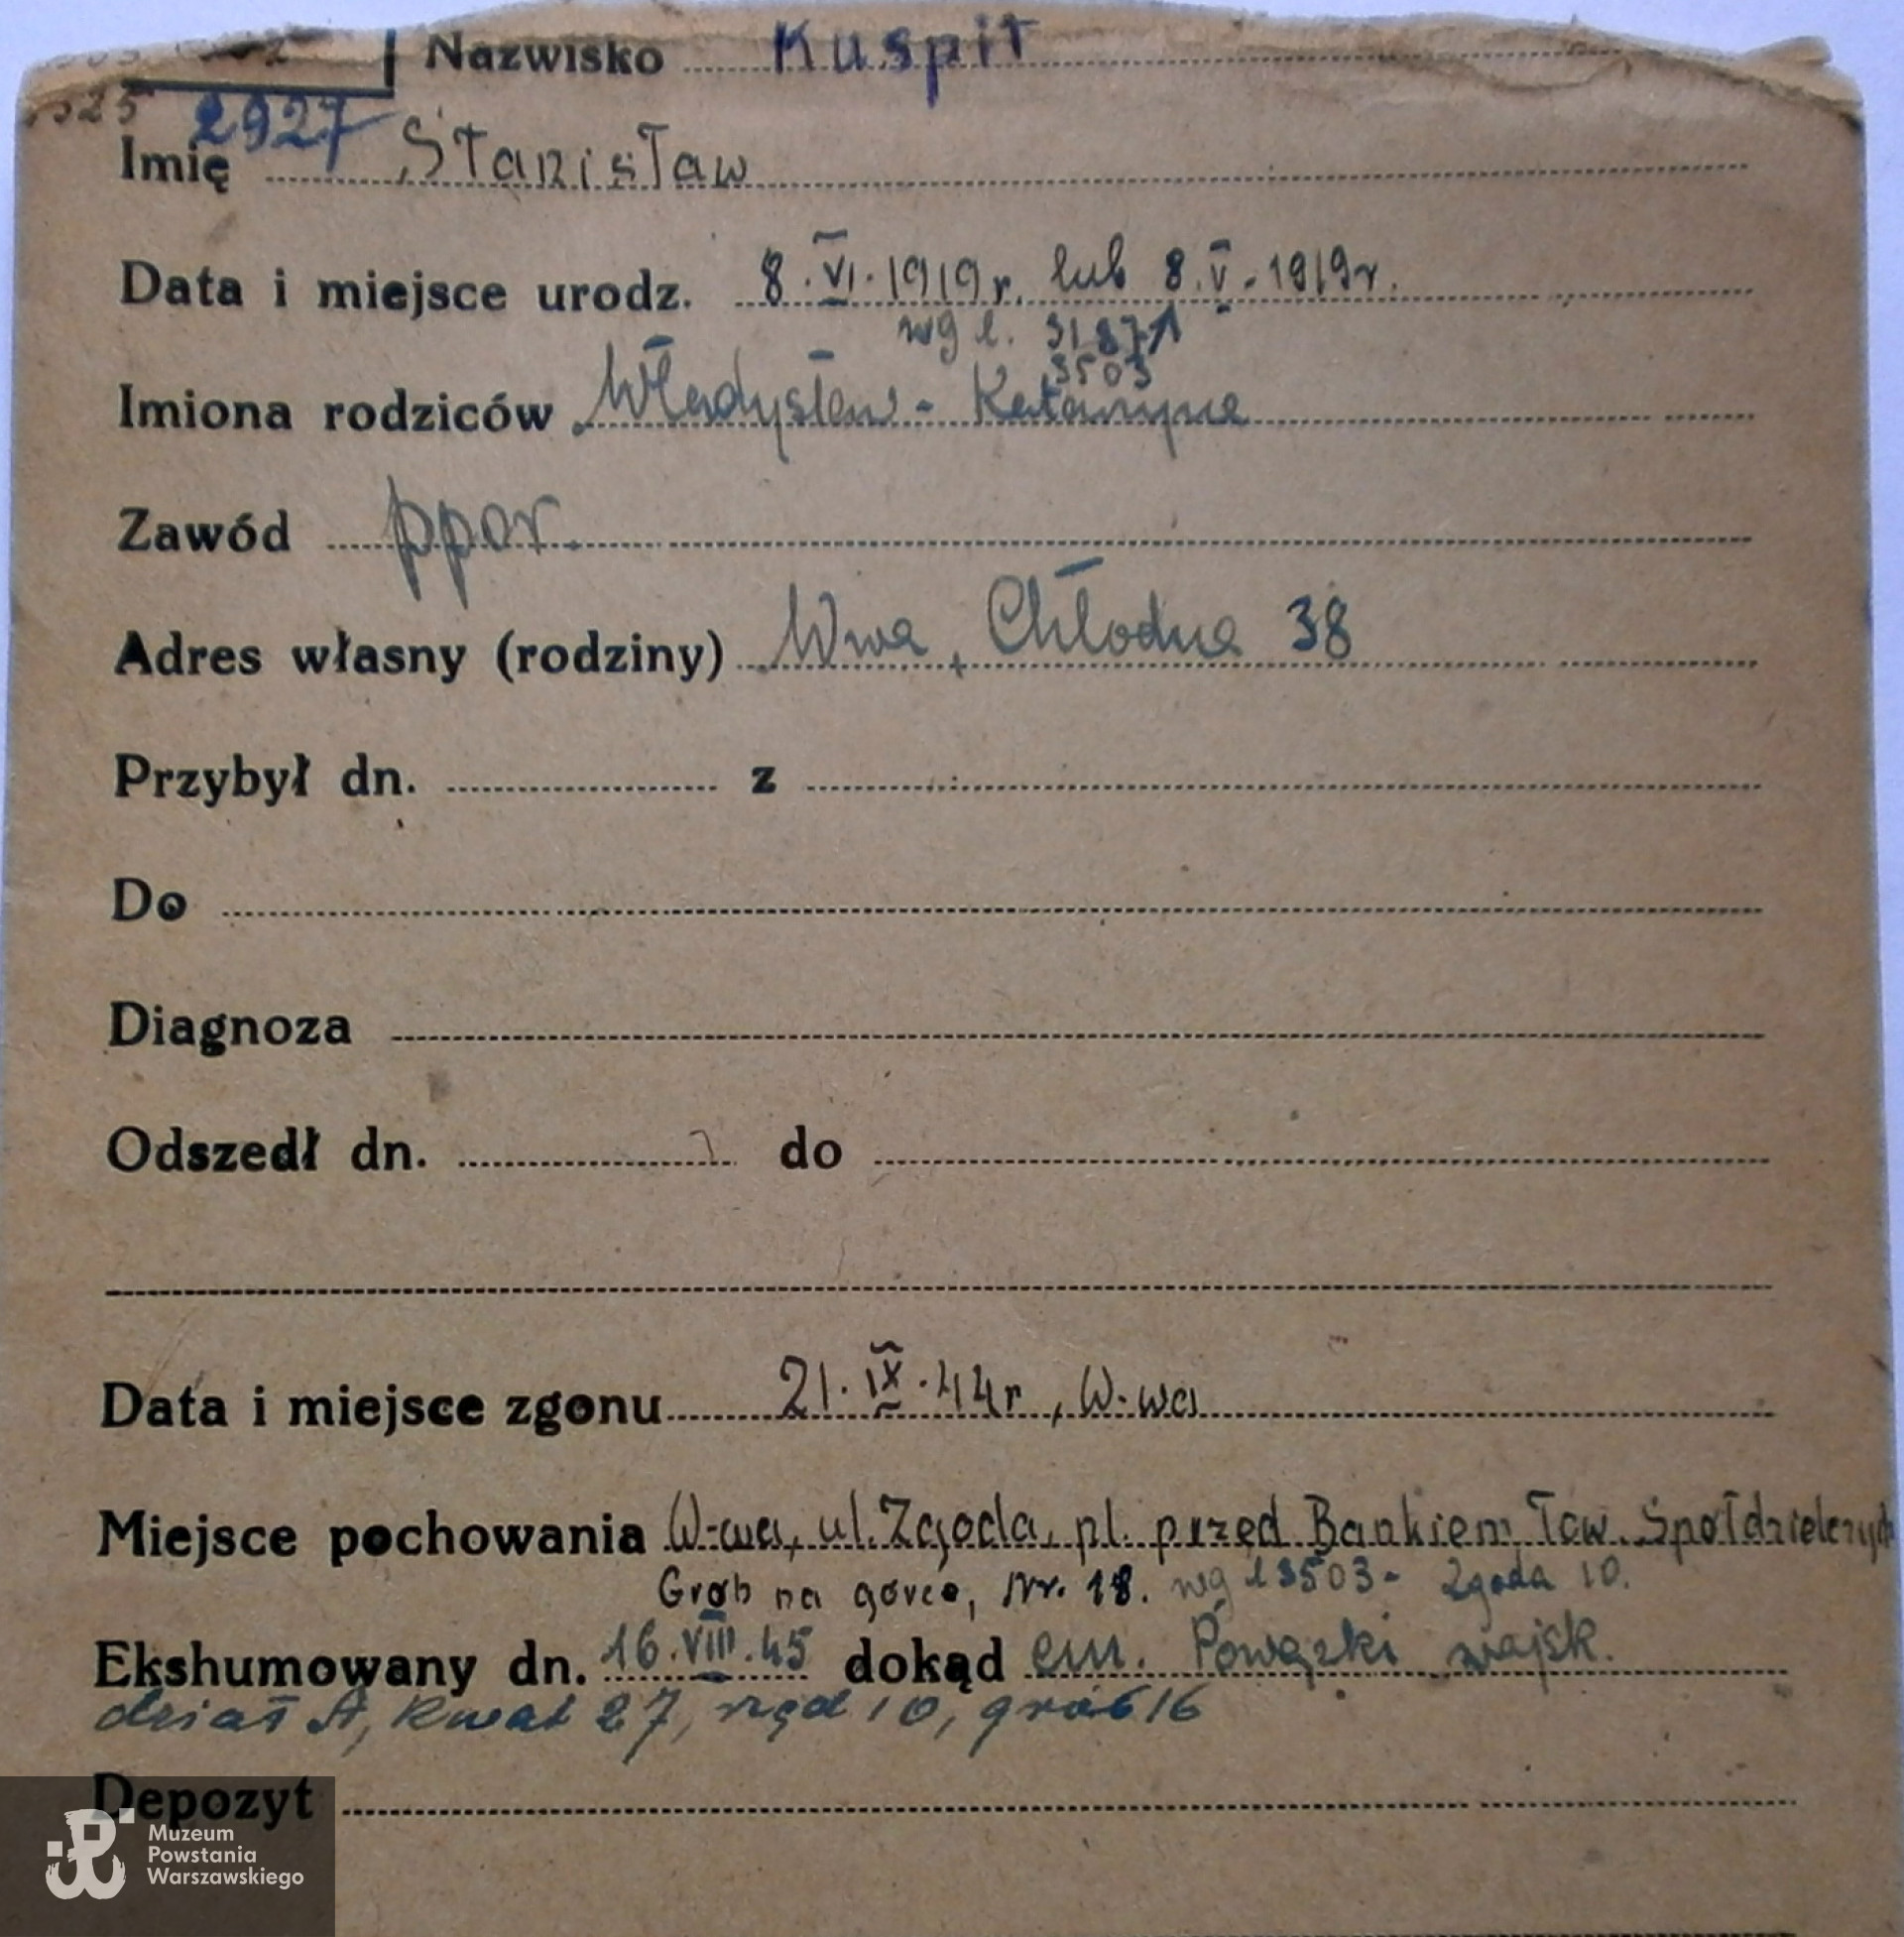 Nazwisko Kuspit
2927
Imię Stanisław
Data i miejsce urodz. 8.VI.1919r. lub 8.V.1919r.
wg l. 3187
3503
Imiona rodziców Władysław - Katarzyna
Zawód ppor.
Adres własny (rodziny) Wwa, Chłodna 38
Przybył dn. z
Do
Diagnoza
Odszedł dn. do
Data i miejsce zgonu 21.IX.44r, W-wa
Miejsce pochowania W-wa, ul. Zgoda, pl. przed Bankiem Tow. Spółdzielczych
Grób na górce, Nr. 18. wg l 3503 - Zgoda 10.
Ekshumowany dn. 16.VIII.45 dokąd cm. Powązki wojsk.
dział A, kwat 27, rząd 10, grób 16
Depozyt
Muzeum
Powstania
Warszawskiego